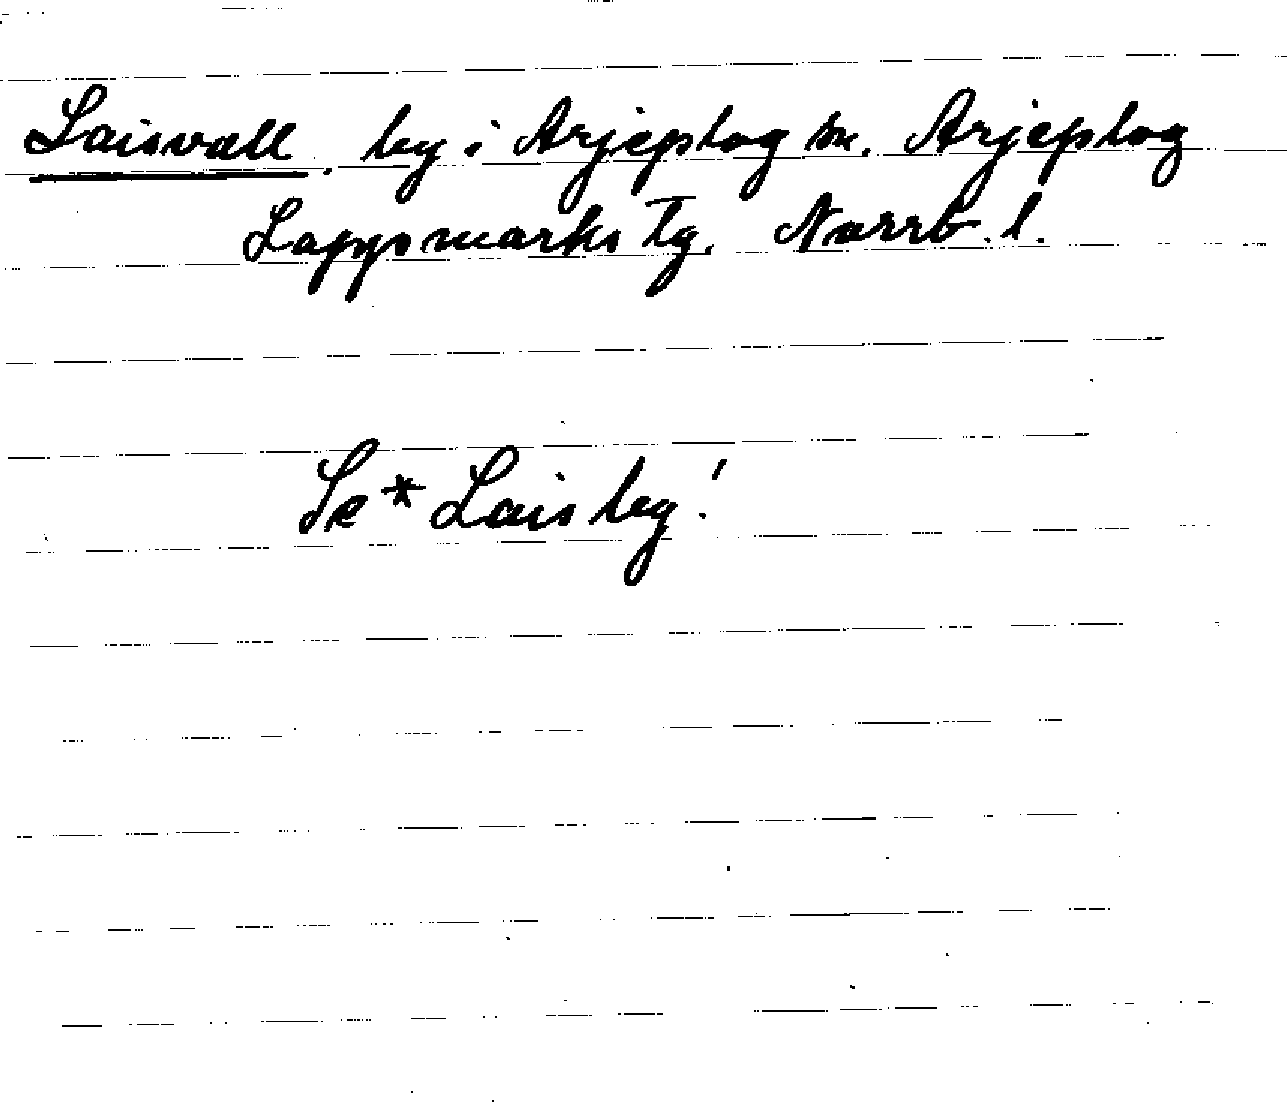 Laisvall, by i Arjeplog sn. Arjeplog
Lappmarks tg. Norrb. l.
Se * Laisby!